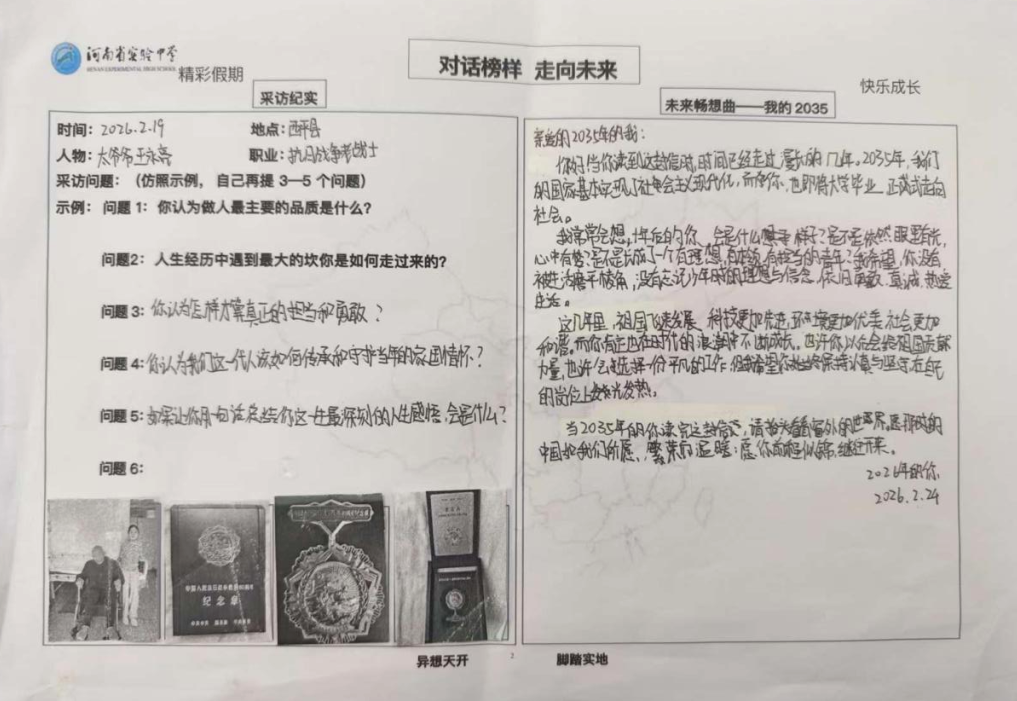 河南省实验中学
HENAN EXPERIMENTAL HIGH SCHOOL
精彩假期
对话榜样 走向未来
快乐成长
采访纪实
时间：2026.2.19 地点：西平县
人物：太爷爷王永亮 职业：抗美战争老战士
采访问题：（仿照示例，自己再提 3—5 个问题）
示例：问题 1：你认为做人最主要的品质是什么？
问题2：人生经历中遇到最大的坎你是如何走过来的？
问题 3：你认为怎样才算真正的担当和勇敢？
问题 4：你认为我们这一代人该如何传承和守护当年的家国情怀？
问题 5：如果让你用一句话总结你这一生最深刻的人生感悟，会是什么？
问题 6：
纪念章
未来畅想曲——我的 2035
亲爱的2035年的我：
你好！当你读到这封信时，时间已经走过漫长的几年。2035年，我们
的国家基本实现了社会主义现代化，而你，也即将大学毕业，正式走向
社会。
我常常会想，十年后的你，会是什么样子？是不是依然眼里有光，
心中有梦？是不是长成了一个有理想，有本领，有担当的青年？我希望，你没有
被生活磨平棱角，没有忘记少年时的理想与信念，依旧勇敢，真诚，热爱
生活。
这几年里，祖国飞速发展，科技更加先进，环境更加优美，社会更加
和谐。而你，也在时代的浪潮中不断成长。也许你以后会给祖国贡献
力量，也许会选择一份平凡的工作，但我希望你始终保持认真与坚守，在自己
的岗位上发光发热。
当2035年的你读完这封信，请抬头看看窗外的世界，愿那时的
中国如我们所愿，繁荣而温暖；愿你前程似锦，继往开来。
2026年的你
2026.2.24
异想天开 2 脚踏实地